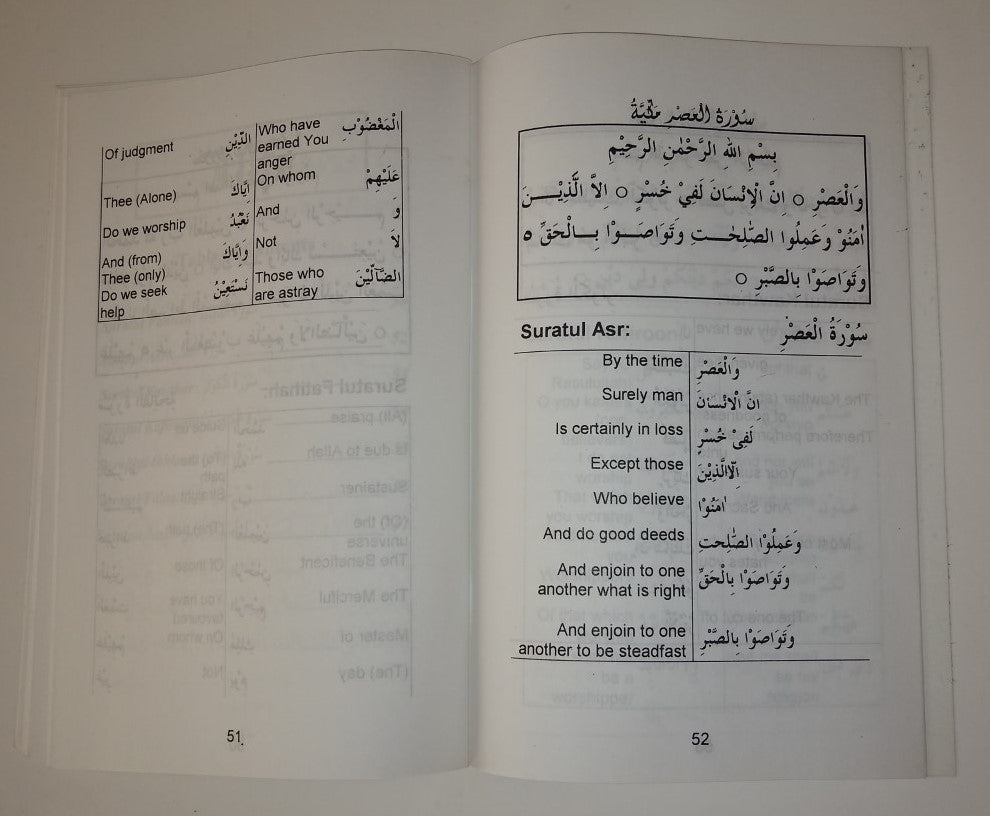 Of judgment الدِّيْنِ Who have earned You anger الْمَغْضُوْبِ
Thee (Alone) اِيَّاكَ On whom عَلَيْهِمْ
Do we worship نَعْبُدُ And وَ
And (from) Thee (only) وَاِيَّاكَ Not لاَ
Do we seek help نَسْتَعِيْنُ Those who are astray الضَّآلِّيْنَ
51
سُوْرَةُ الْعَصْرِ مَكِّيَّةُ
بِسْمِ اللهِ الرَّحْمٰنِ الرَّحِيْمِ
وَالْعَصْرِ ○ اِنَّ الْاِنْسَانَ لَفِيْ خُسْرٍ ○ اِلاَّ الَّذِيْنَ
اٰمَنُوْ وَعَمِلُوا الصّٰلِحٰتِ وَتَوَاصَوْا بِالْحَقِّ ٥
وَتَوَاصَوْا بِالصَّبْرِ ○
Suratul Asr: سُوْرَةُ الْعَصْرِ
By the time وَالْعَصْرِ
Surely man اِنَّ الْاِنْسَانَ
Is certainly in loss لَفِيْ خُسْرٍ
Except those اِلاالَّذِيْنَ
Who believe اٰمَنُوْا
And do good deeds وَعَمِلُوْا الصّٰلِحٰتِ
And enjoin to one وَتَوَاصَوْا بِالْحَقِّ
another what is right
And enjoin to one وَتَوَاصَوْا بِالصَّبْرِ
another to be steadfast
52